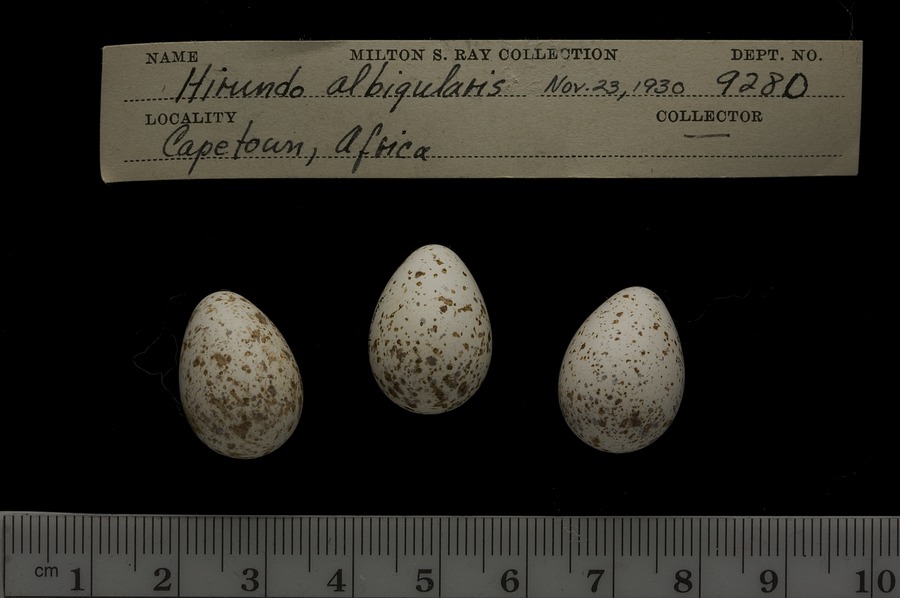 NAME MILTON S. RAY COLLECTION DEPT. NO.
Hirundo albigularis Nov. 23, 1930 9280
LOCALITY COLLECTOR
Capetown, Africa
cm 1 2 3 4 5 6 7 8 9 10